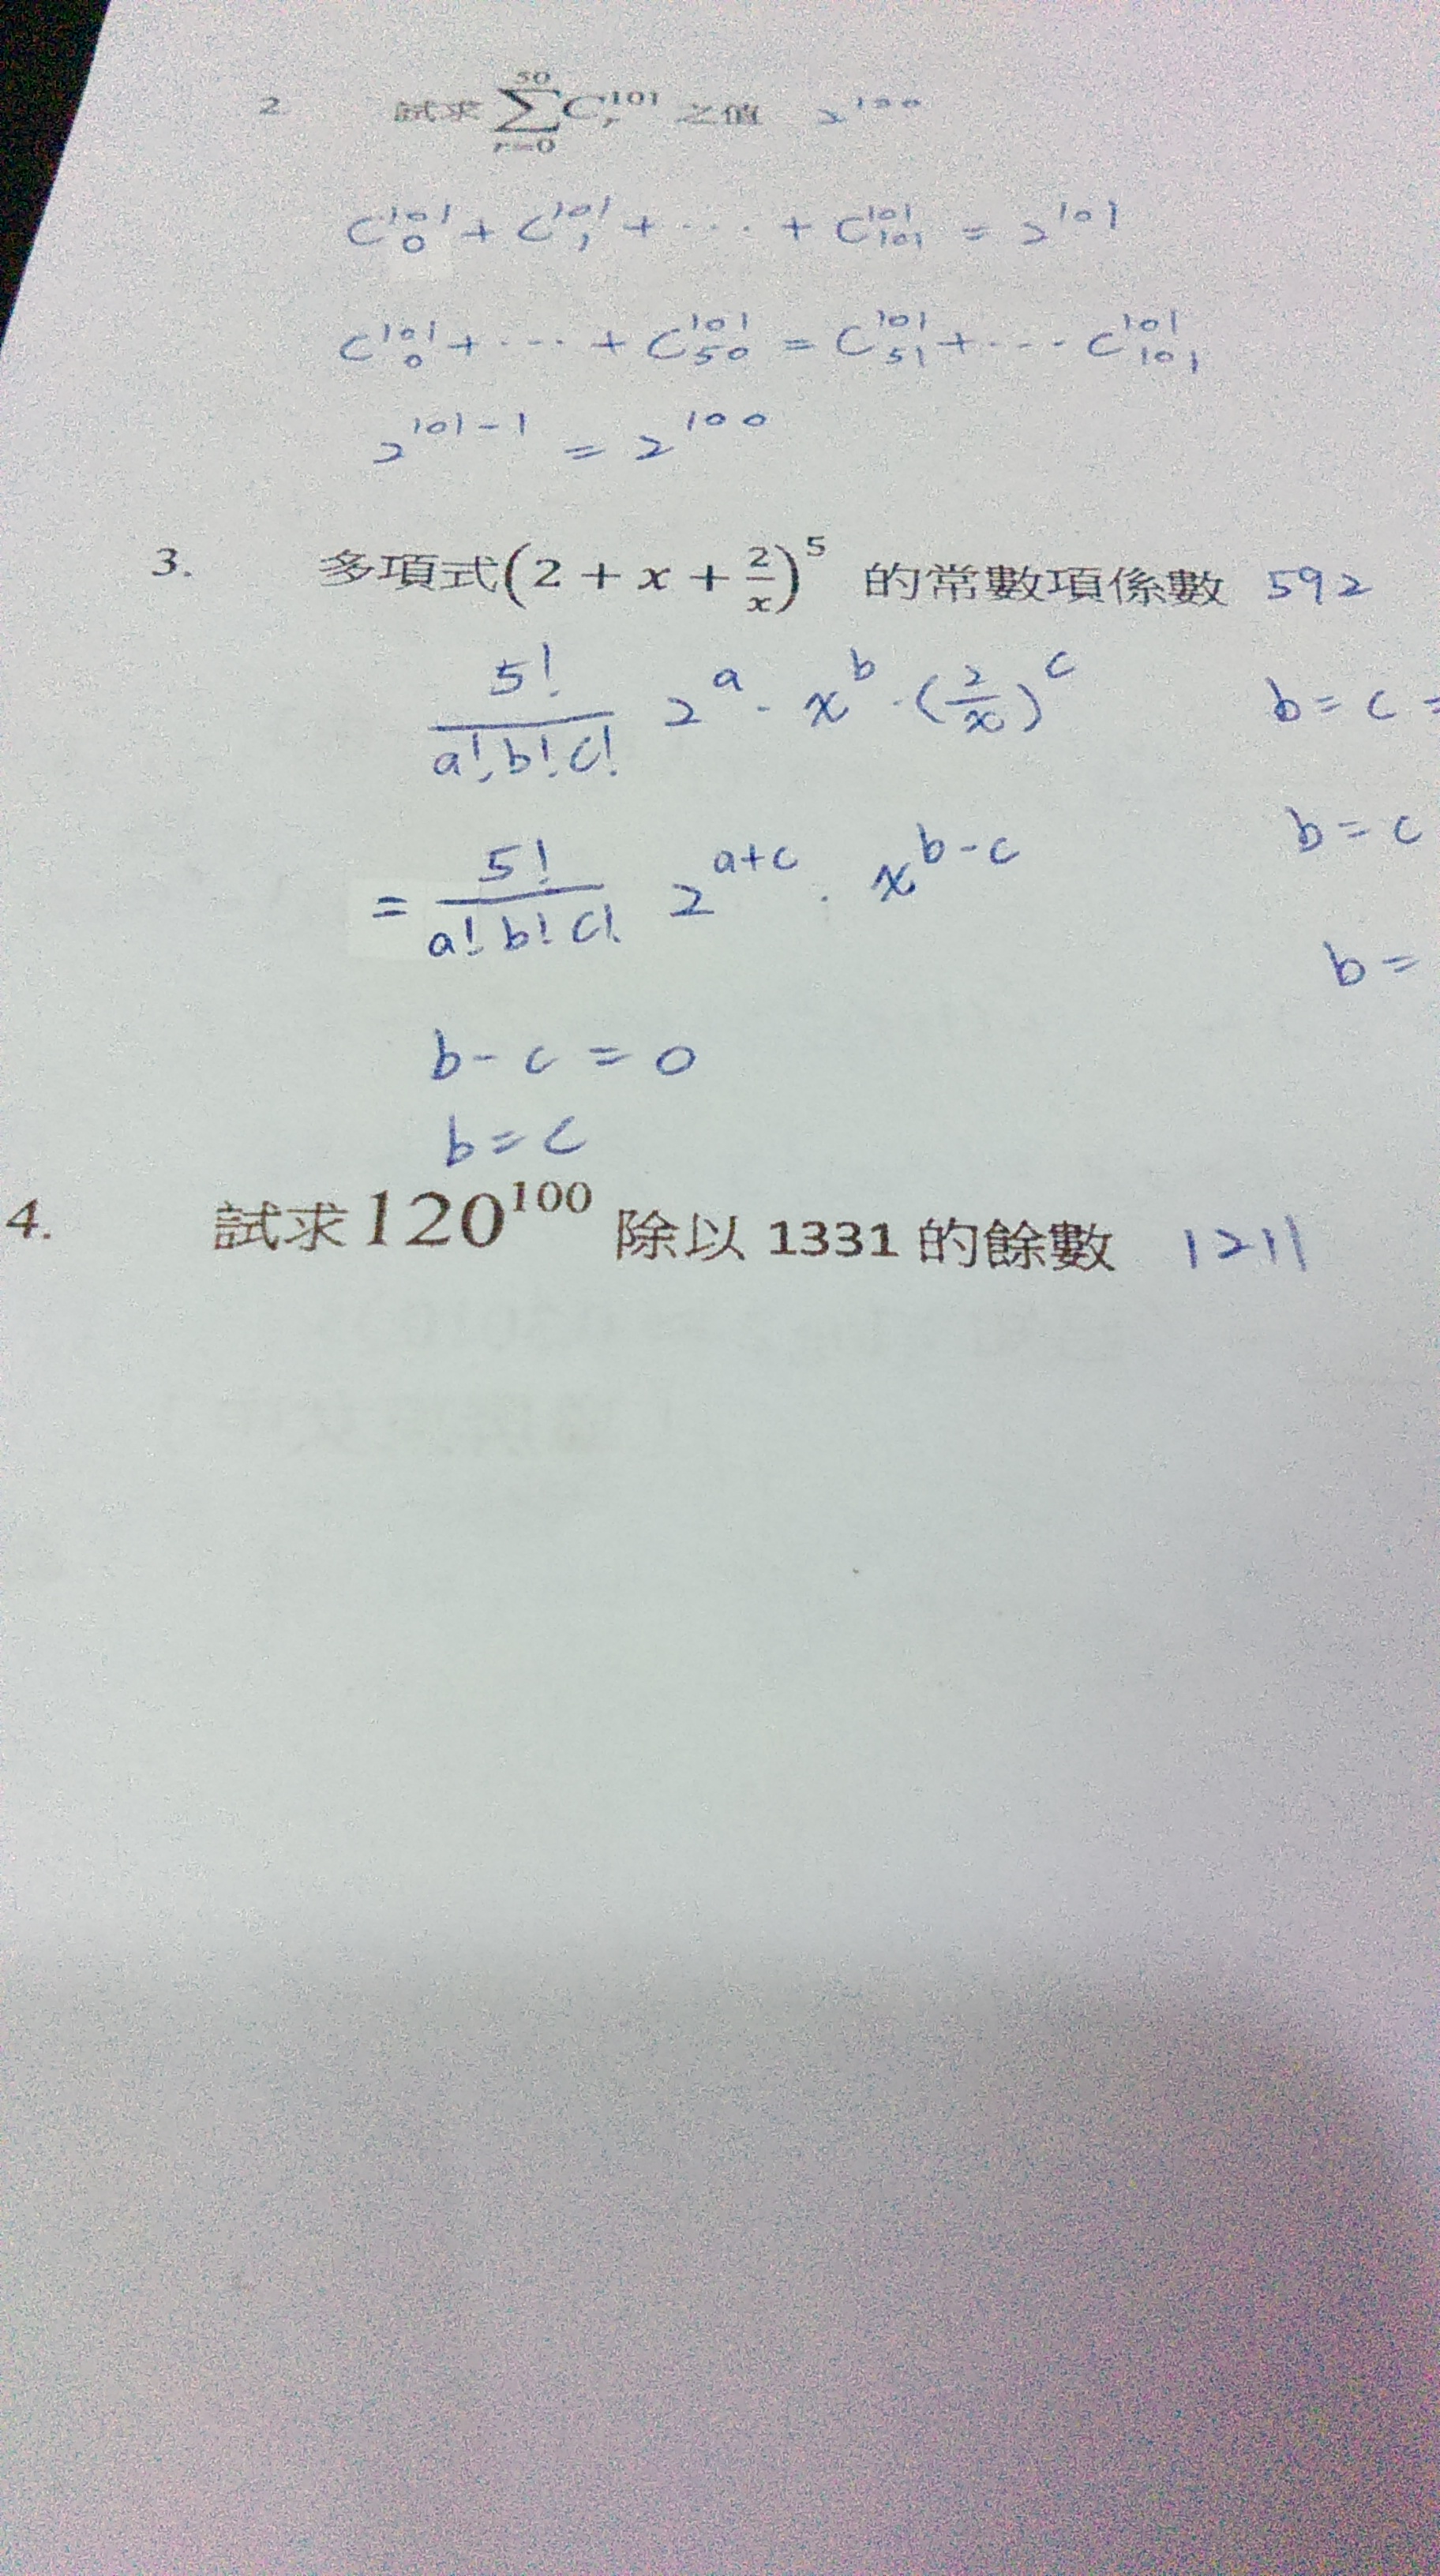 2. 試求 \sum_{r=0}^{50} C_r^{101} 之值 2^{100}
C_0^{101} + C_1^{101} + ⋯ + C_{101}^{101} = 2^{101}
C_0^{101} + ⋯ + C_{50}^{101} = C_{51}^{101} + ⋯ C_{101}^{101}
2^{101-1} = 2^{100}
3. 多項式(2 + x + \frac{2}{x})^5 的常數項係數 592
\frac{5!}{a!b!c!} 2^a · x^b · (\frac{2}{x})^c b = c =
= \frac{5!}{a!b!c!} 2^{a+c} · x^{b-c} b = c
b =
b - c = 0
b = c
4. 試求 120^{100} 除以 1331 的餘數 1211